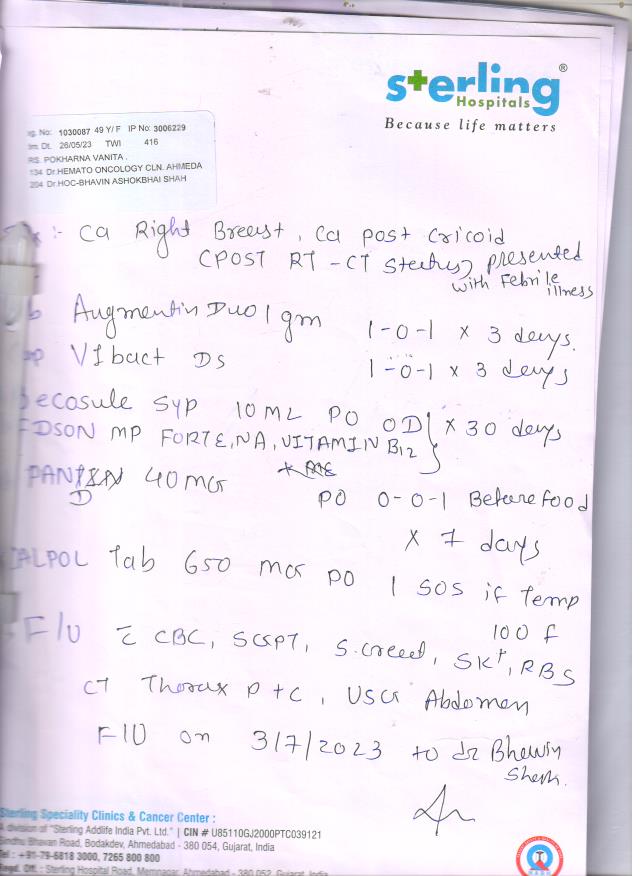 sterling®
Hospitals
Because life matters
g. No: 1030087 49 Y/ F IP No: 3006229
dm. Dt. 26/05/23 TWI 416
RS. POKHARNA VANITA .
134 Dr.HEMATO ONCOLOGY CLN. AHMEDA
204 Dr.HOC-BHAVIN ASHOKBHAI SHAH
:- Ca Right Breast, Ca post cricoid
CPOST RT - CT Status) presented
with Febrile
illness
b Augmentin Duo 1 gm 1-0-1 x 3 days.
ap VIbact DS 1-0-1 x 3 days
Becosule Syp 10 ML PO OD } x 30 days
EDSON MP FORTE, NA, VITAMIN B12
PAN 40 MG
D PO 0-0-1 Before food
x 7 days
CALPOL Tab 650 mg PO 1 SOS if Temp
100 f
F/U c̄ CBC, SGPT, S.creat, SK+, RBS
CT Thorax P+C, USG Abdomen
F/U on 3/7/2023 to dr Bhavin
Shah.
Sterling Speciality Clinics & Cancer Center :
A division of "Sterling Addlife India Pvt. Ltd." | CIN # U85110GJ2000PTC039121
Sindhu Bhavan Road, Bodakdev, Ahmedabad - 380 054, Gujarat, India
Tel : +91-79-6818 3000, 7265 800 800
Regd. Off. : Sterling Hospital Road, Memnagar, Ahmedabad - 380 052, Gujarat, India